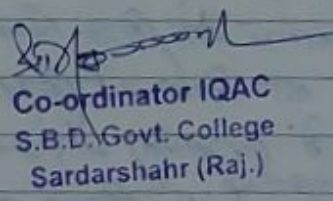 Co-ordinator IQAC
S.B.D. Govt. College
Sardarshahr (Raj.)